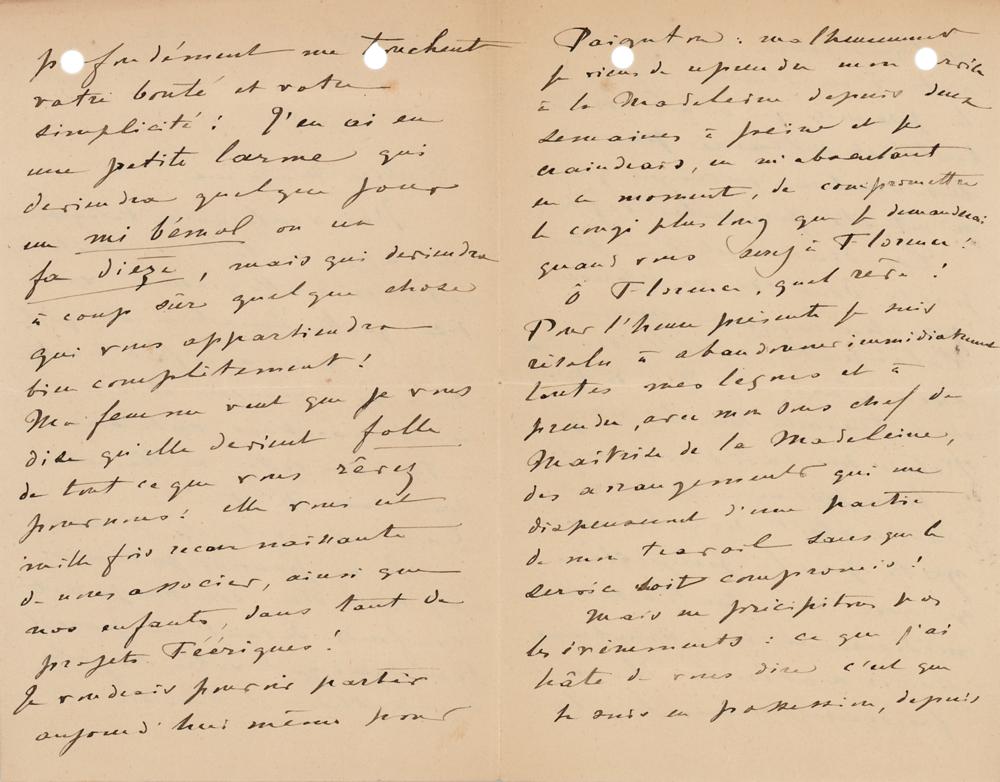 profondément me touchent
votre bonté et votre
simplicité ! J'en ai eu
une petite larme qui
deviendra quelque jour
un mi bémol ou un
fa dièze, mais qui deviendra
à coup sûr quelque chose
qui vous appartiendra
bien complètement !
Ma femme veut que je vous
dise qu'elle devient folle
de tout ce que vous rêvez
pour nous : elle vous est
mille fois reconnaissante
de nous associer, ainsi que
nos enfants, dans tant de
projets Féériques !
Je voudrais pouvoir partir
aujourd'hui même pour
Paignton : malheureusement
je viens de reprendre mon service
à la Madeleine depuis deux
semaines à peine et je
craindrais, en m'absentant
en ce moment, de compromettre
le congé plus long que je demanderai
quand vous serez à Florence !
Ô Florence, quel rêve !
Pour l'heure présente je suis
résolu à abandonner immédiatement
toutes mes leçons et à
prendre, avec mon sous chef de
Maîtrise de la Madeleine,
des arrangements qui me
dispenseront d'une partie
de mon travail sans que le
service soit compromis !
Mais ne précipitons pas
les évènements : ce que j'ai
hâte de vous dire c'est que
je suis en possession, depuis